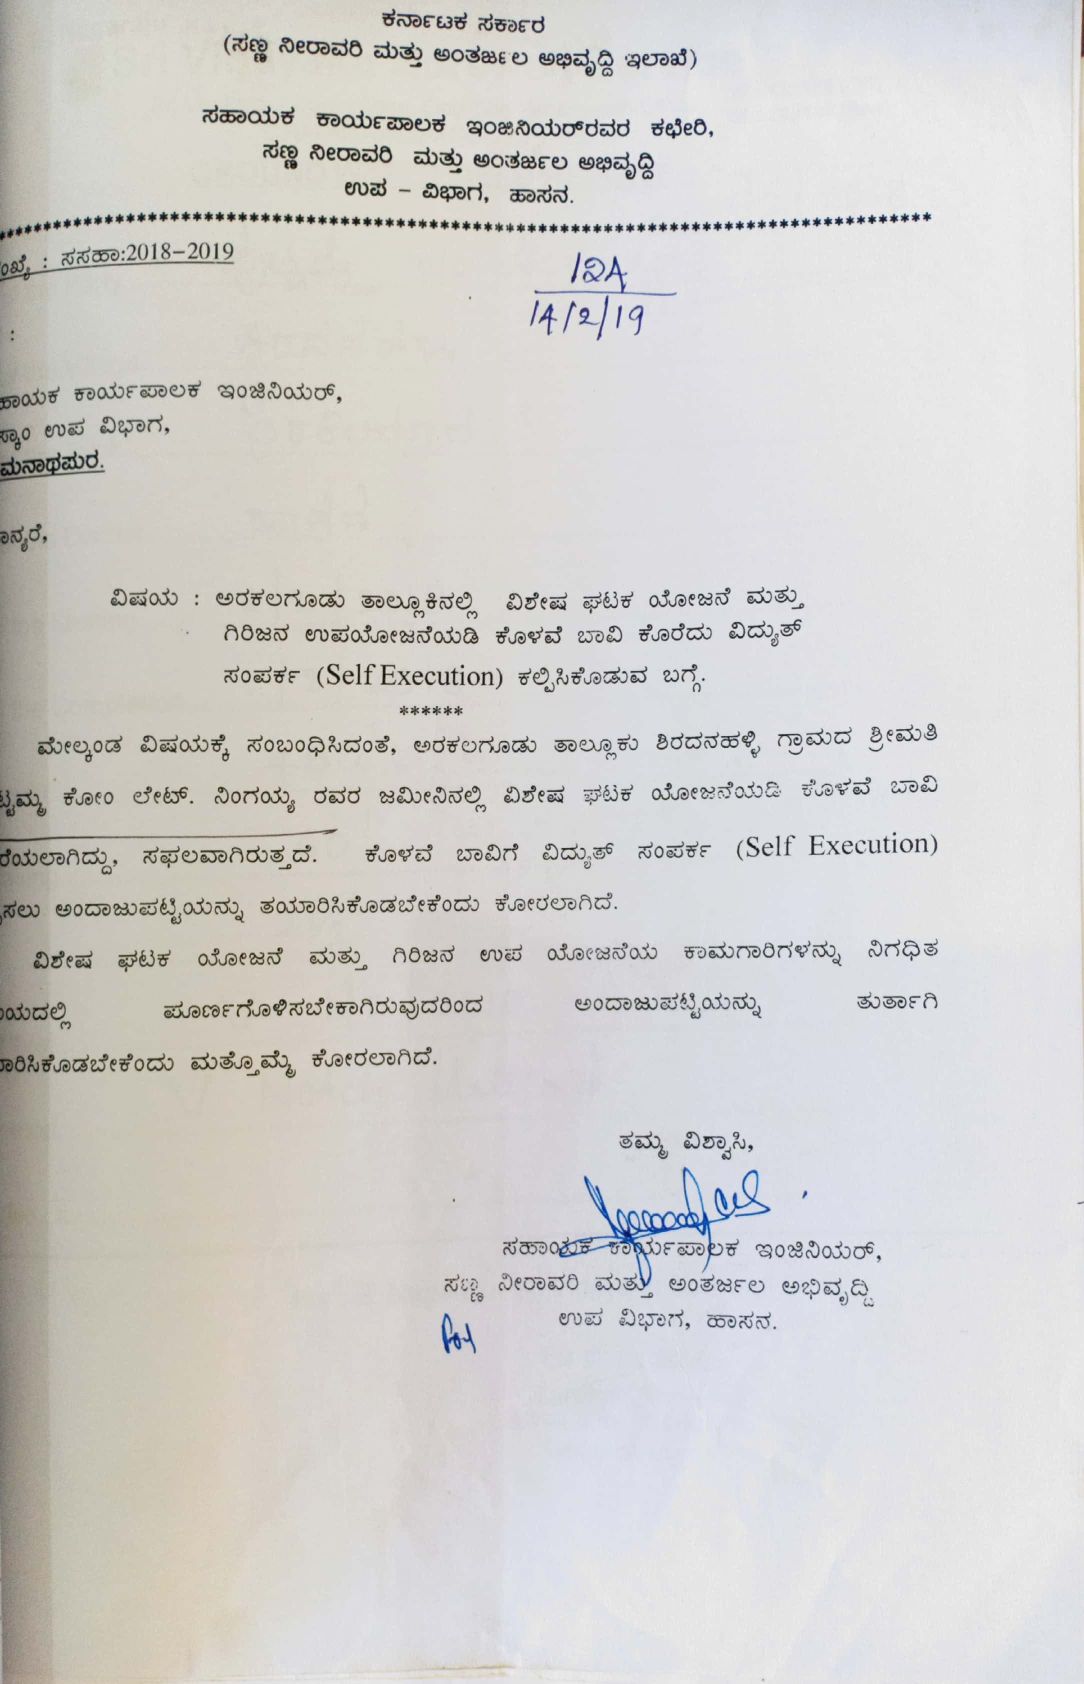 ಕರ್ನಾಟಕ ಸರ್ಕಾರ
(ಸಣ್ಣ ನೀರಾವರಿ ಮತ್ತು ಅಂತರ್ಜಲ ಅಭಿವೃದ್ಧಿ ಇಲಾಖೆ)
ಸಹಾಯಕ ಕಾರ್ಯಪಾಲಕ ಇಂಜಿನಿಯರ್‌ರವರ ಕಛೇರಿ,
ಸಣ್ಣ ನೀರಾವರಿ ಮತ್ತು ಅಂತರ್ಜಲ ಅಭಿವೃದ್ದಿ
ಉಪ – ವಿಭಾಗ, ಹಾಸನ.
ಂಖ್ಯೆ : ಸಸಹಾ:2018–2019
14/2/19
:
ಹಾಯಕ ಕಾರ್ಯಪಾಲಕ ಇಂಜಿನಿಯರ್,
ಸ್ಕಾಂ ಉಪ ವಿಭಾಗ,
ಮನಾಥಪುರ.
ಾನ್ಯರೆ,
ವಿಷಯ : ಅರಕಲಗೂಡು ತಾಲ್ಲೂಕಿನಲ್ಲಿ ವಿಶೇಷ ಘಟಕ ಯೋಜನೆ ಮತ್ತು
ಗಿರಿಜನ ಉಪಯೋಜನೆಯಡಿ ಕೊಳವೆ ಬಾವಿ ಕೊರೆದು ವಿದ್ಯುತ್
ಸಂಪರ್ಕ (Self Execution) ಕಲ್ಪಿಸಿಕೊಡುವ ಬಗ್ಗೆ.
******
ಮೇಲ್ಕಂಡ ವಿಷಯಕ್ಕೆ ಸಂಬಂಧಿಸಿದಂತೆ, ಅರಕಲಗೂಡು ತಾಲ್ಲೂಕು ಶಿರದನಹಳ್ಳಿ ಗ್ರಾಮದ ಶ್ರೀಮತಿ
ಟ್ಟಮ್ಮ ಕೋಂ ಲೇಟ್. ನಿಂಗಯ್ಯ ರವರ ಜಮೀನಿನಲ್ಲಿ ವಿಶೇಷ ಘಟಕ ಯೋಜನೆಯಡಿ ಕೊಳವೆ ಬಾವಿ
ರೆಯಲಾಗಿದ್ದು, ಸಫಲವಾಗಿರುತ್ತದೆ. ಕೊಳವೆ ಬಾವಿಗೆ ವಿದ್ಯುತ್ ಸಂಪರ್ಕ (Self Execution)
ಸಲು ಅಂದಾಜುಪಟ್ಟಿಯನ್ನು ತಯಾರಿಸಿಕೊಡಬೇಕೆಂದು ಕೋರಲಾಗಿದೆ.
ವಿಶೇಷ ಘಟಕ ಯೋಜನೆ ಮತ್ತು ಗಿರಿಜನ ಉಪ ಯೋಜನೆಯ ಕಾಮಗಾರಿಗಳನ್ನು ನಿಗಧಿತ
ಯದಲ್ಲಿ ಪೂರ್ಣಗೊಳಿಸಬೇಕಾಗಿರುವುದರಿಂದ ಅಂದಾಜುಪಟ್ಟಿಯನ್ನು ತುರ್ತಾಗಿ
ಾರಿಸಿಕೊಡಬೇಕೆಂದು ಮತ್ತೊಮ್ಮೆ ಕೋರಲಾಗಿದೆ.
ತಮ್ಮ ವಿಶ್ವಾಸಿ,
ಸಹಾಯಕ ಕಾರ್ಯಪಾಲಕ ಇಂಜಿನಿಯರ್,
ಸಣ್ಣ ನೀರಾವರಿ ಮತ್ತು ಅಂತರ್ಜಲ ಅಭಿವೃದ್ದಿ
ಉಪ ವಿಭಾಗ, ಹಾಸನ.